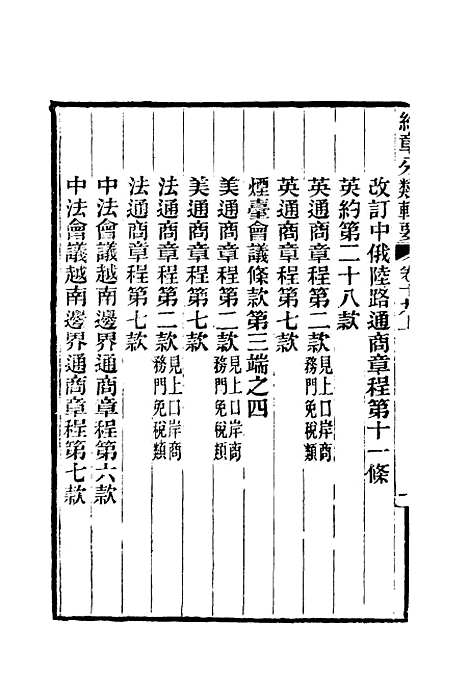 約章分類輯要 卷十九上
改訂中俄陸路通商章程第十一條
英約第二十八款
英通商章程第二款見上口岸商務門免稅類
英通商章程第七款
煙臺會議條款第三端之四
美通商章程第二款見上口岸商務門免稅類
美通商章程第七款
法通商章程第二款見上口岸商務門免稅類
法通商章程第七款
中法會議越南邊界通商章程第六款
中法會議越南邊界通商章程第七款